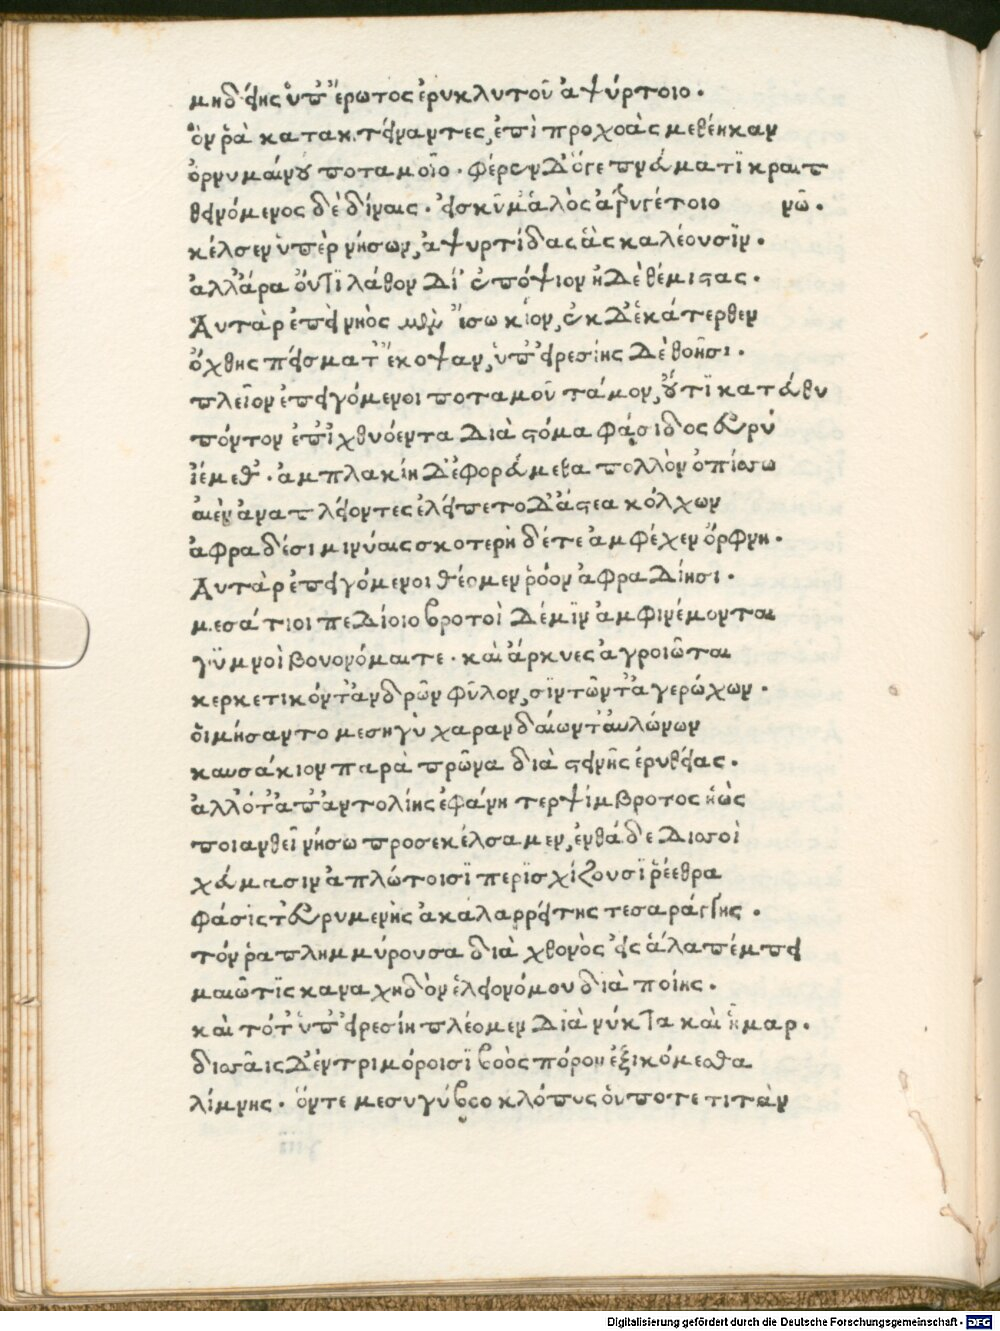 μηδείης ὑπ' ἔρωτος ἐρυκλυτοῦ ἀψύρτοιο.
ὃν ῥὰ κατακτείναντες, ἐπὶ προχοὰς μεθέηκαν
ὀρνυμένου ποταμοῖο. φέρεν δ' ὅγε πνεύματι κραιπ
θεινόμενος δὲ δίναις. ἐς κῦμ' ἁλὸς ἀτρυγέτοιο νῶ.
κέλσεν ὑπὲρ νήσων, ἀψυρτίδας ἃς καλέουσιν.
ἀλλ' ἄρα οὔντι λάθον δί' ἐπόψιον ἠδὲ θέμιστας.
Αυτὰρ ἐπεὶ νηὸς μὲν ἴσω κίον, ἐκ δ' ἑκάτερθεν
ὄχθης πείσματ' ἔκοψαν, ὑπ' εἰρεσίης δὲ θοῆσι.
πλεῖον ἐπειγόμενοι ποταμοῦ τάμον, οὔτι κατ' εὐθὺ
πόντον ἐπ' ἰχθυόεντα διὰ στόμα φάσιδος εὐρύ
ἱέμεθ'. ἀμπλακίη δ' ἐφορεύμεθα πολλὸν ὀπίσσω
αἰὲν ἀναπλείοντες ἐλείπετο δ' ἄστεα κόλχων
ἀφραδέσι μινύαις σκοτερὴ δέ τε ἀμφέχεν ὄρφνη.
Αυτὰρ ἐπειγόμενοι θέομεν ῥόον ἀφραδίησι.
μεσάτιοι πεδίοιο βροτοὶ δέ μιν ἀμφινέμονται
γυμνοὶ βονονόμαι τε. καὶ ἄρκνες ἀγροιῶται
κερκετικόν τ' ἀνδρῶν φῦλον, σιντῶν τ' ἀγερώχων.
οἰμήσαντο μεσηγὺ χαρανδαίων τ' αὐλώνων
καυσάκιον παρὰ πρῶνα διὰ στεινῆς ἐρυθείας.
ἀλλ' ὅτ' ἀπ' ἀντολίης ἐφάνη τερψίμβροτος ἠὼς
ποιανθεῖ νήσω προσεκέλσαμεν, ἐνθάδε δισσοὶ
χεύμασιν ἀπλώτοισι περισχίζουσι ῥέεθρα
φάσις τ' εὐρυμενὴς ἀκαλαρρείτης τε σαράγγης.
τόν ῥα πλημμύρουσα διὰ χθονὸς εἰς ἅλα πέμπει
μαιῶτις καναχηδὸν ἑλειονόμου διὰ ποίης.
καὶ τότ' ὑπ' εἰρεσίη πλέομεν διὰ νύκτα καὶ ἦμαρ.
δισσαῖς δ' ἐν τριμόροισι βοὸς πόρον ἐξικόμεσθα
λίμνης. ὅντε μεσυγύ βοο κλόπυς ὁπποτε τιτὰν